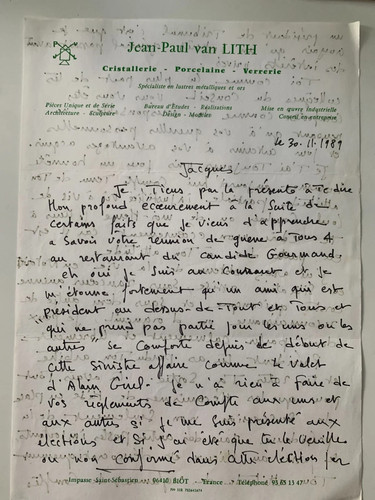 Jean-Paul van LITH
Cristallerie - Porcelaine - Verrerie
Spécialiste en lustres métalliques et ors
Pièces Unique et de Série
Architecture - Sculpture
Bureau d'Etudes - Réalisations
Design - Modèles
Mise en œuvre Industrielle
Conseil en entreprise
le 30.11.1989
Jacques
Je Tiens par la présente à Te dire
Mon profond écœurement à la Suite de
certains faits que je viens d'apprendre
a Savoir votre réunion de guerre à Tous 4
au restaurant du Candide Gourmand.
eh oui je Suis au Courant et je
m'étonne fortement qu'un ami qui est
"président au dessus de Tout et Tous et
qui ne prend pas partie pour les uns ou les
autres" se comporte depuis le début de
cette Sinistre affaire comme le Valet
d'Alain je n'ai rien à faire de
vos règlements de Compte aux uns et
aux autres si je me suis présenté aux
elections et Si j'ai été que tu le veuille
ou non confirmé dans cette election par
Impasse Saint-Sébastien 06410 BIOT - France - Téléphone 93 65 15 47